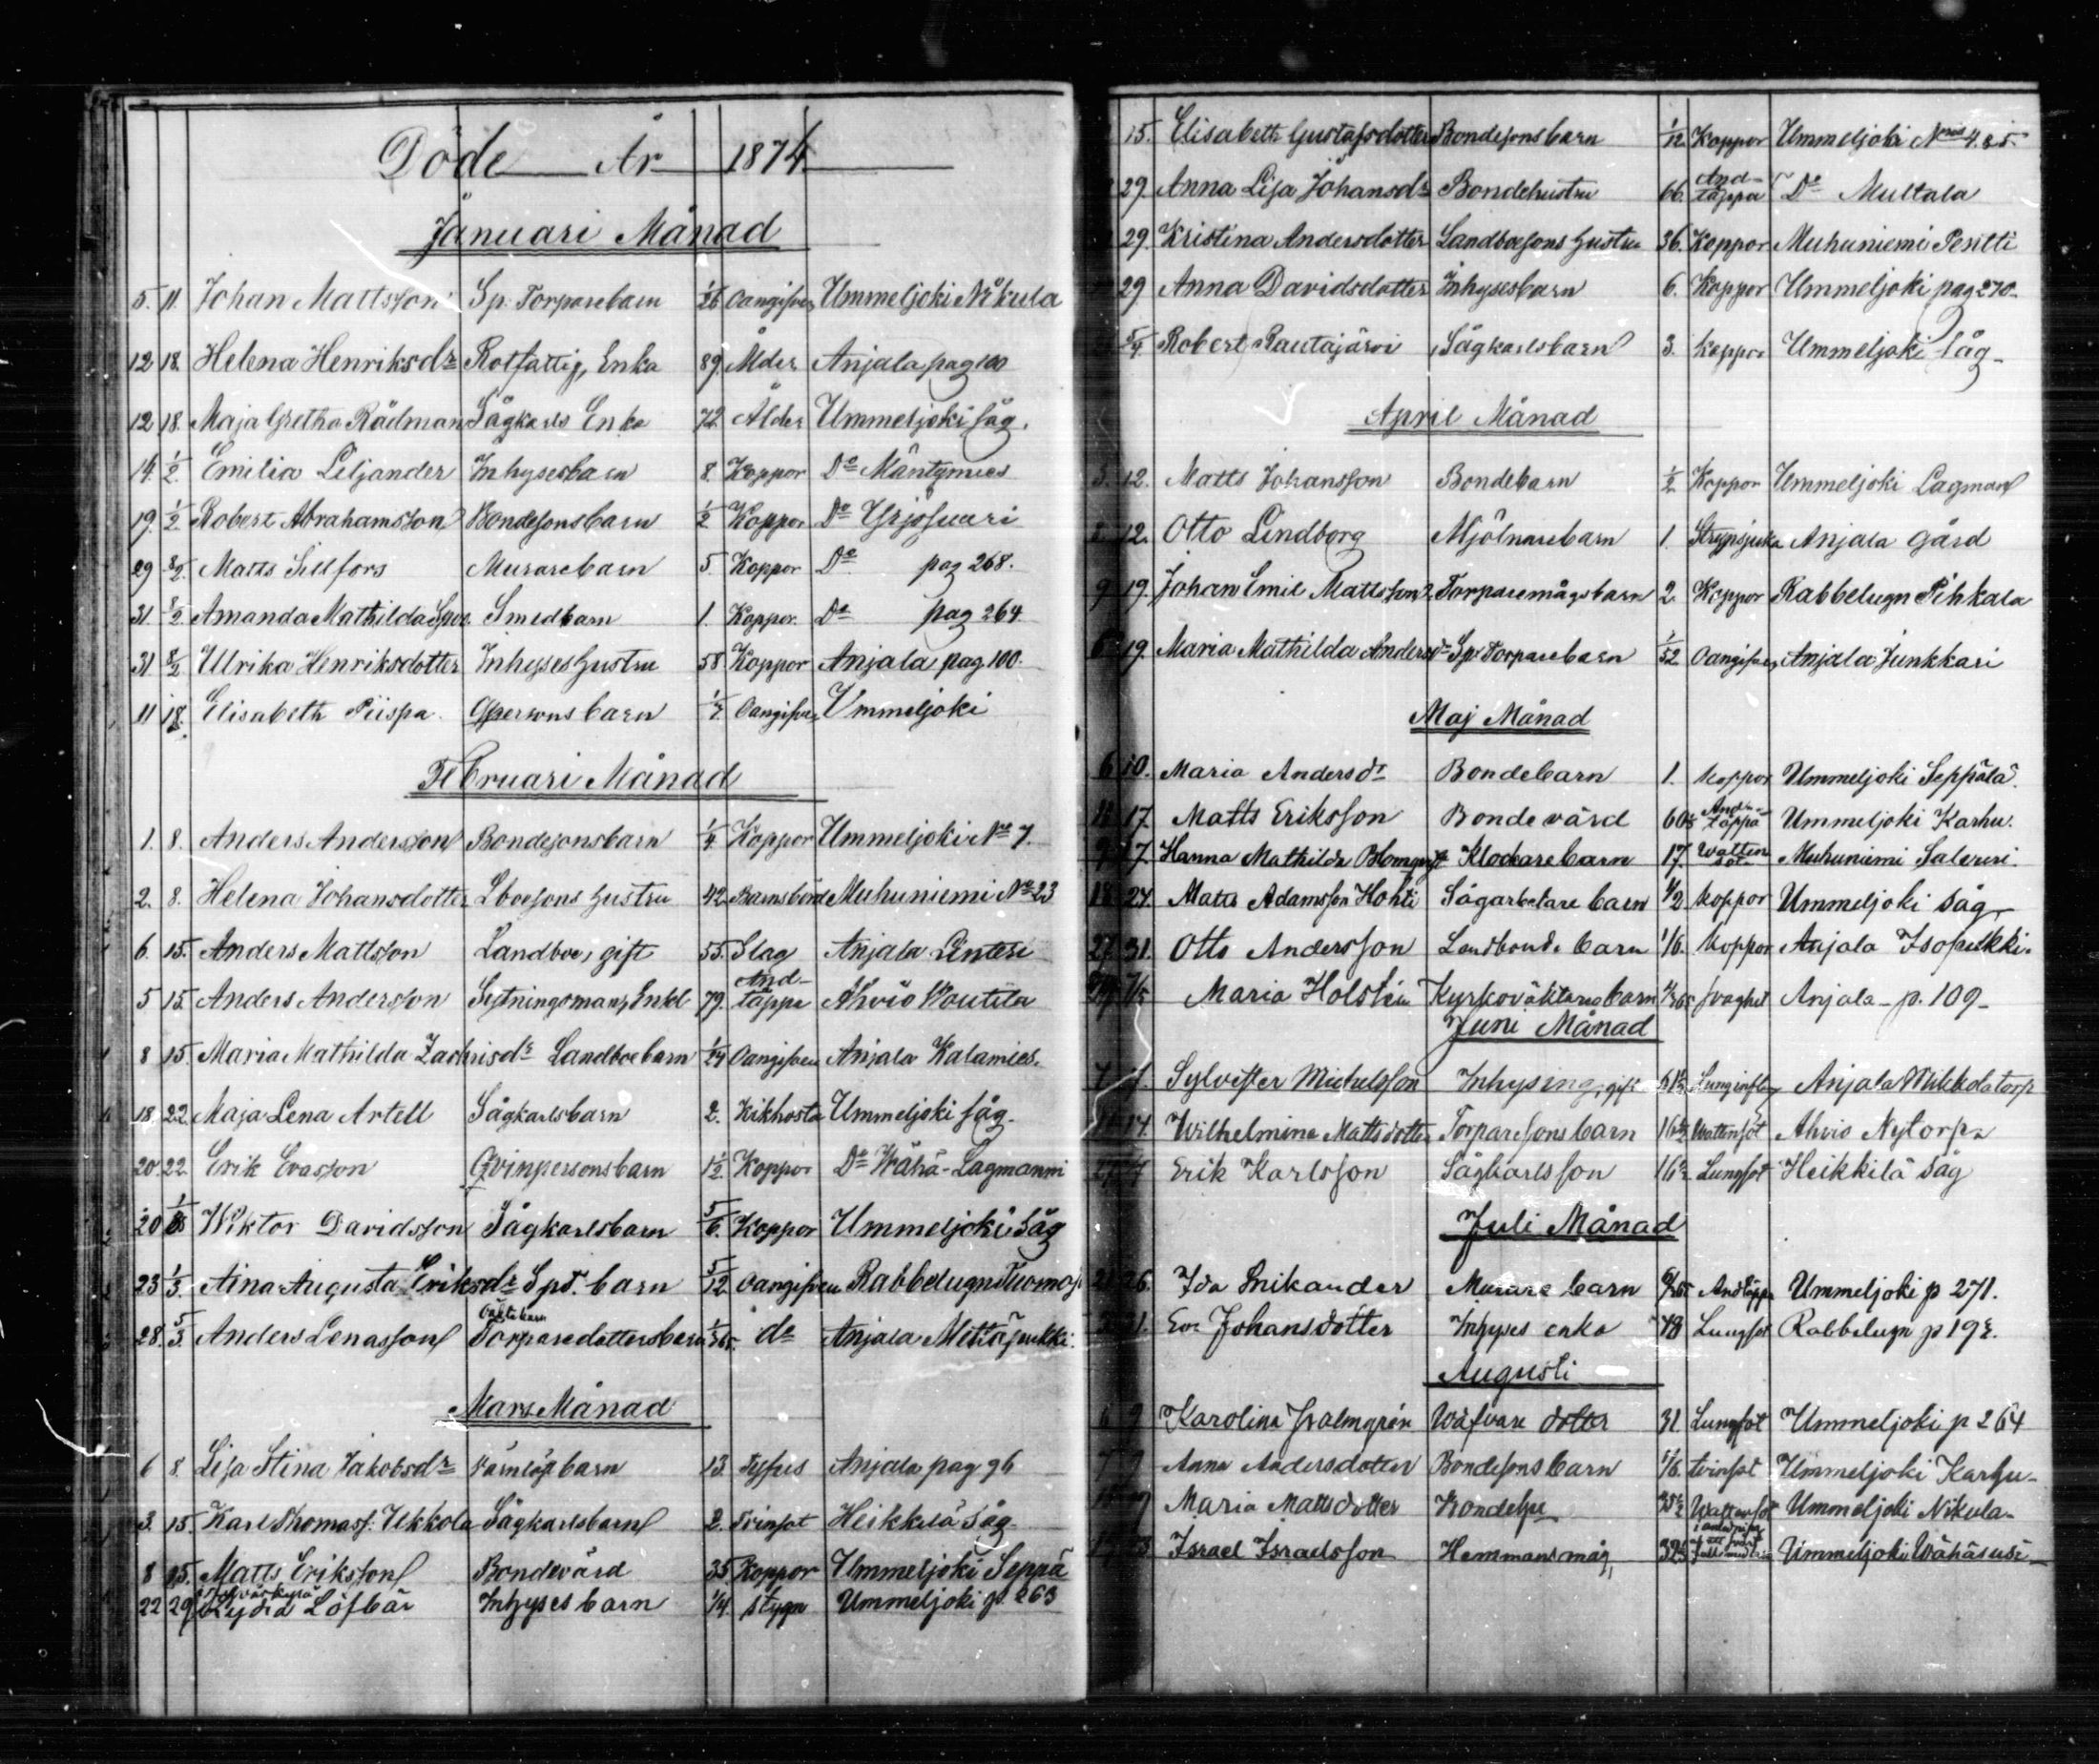 Döde År 1874.
Januari Månad
5. 11. Johan Mattsson Sp. Torparebarn 1/26 Oangifven Ummeljoki Nikula
12 18. Helena Henriksdr Rotfattig, Enka 89. Ålder Anjala pag 100
12 18. Maja Gretha Rådman Sågkarls Enka 72. Ålder Ummeljoki såg.
14. 1/2. Emilia Liljander Inhysesbarn 8. Koppor Do Mäntymies
19. 1/2 Robert Abrahamsson Bondesonsbarn 1/2 Koppor Do Yrjösuuri
29 8/2. Matts Sillfors Murarebarn 5. Koppor Do pag 268.
31 8/2. Amanda Mathilda Smedbarn 1. Koppor. Do pag 264
31 8/2 Ulrika Henriksdotter Inhyses hustru 58 Koppor Anjala pag 100.
11 18. Elisabeth Piispa. Qpersonsbarn Oangifven Ummeljoki
Februari Månad
1. 8. Anders Andersson Bondesonsbarn 1/4 Koppor Ummeljoki No 7.
2. 8. Helena Johansdotter Lboesons hustru 42 Barnsbörd Muhuniemi No 23
6. 15. Anders Mattsson Landboe, gift 55. Slag Anjala
5 15. Anders Andersson Sytningsman, Enkl 79. Andtäppa Ahvio Woutila
8 15. Maria Mathilda Zachrisdr Landboebarn 1/24 Oangifven Anjala Kalamies.
18. 22. Maja Lena Artell Sågkarlsbarn 2. Kikhosta Ummeljoki såg.
20. 22. Erik Evasson Qvinpersonsbarn 1 1/2. Koppor Do Wähä-Lagmanni
20 1/3 Wiktor Davidsson Sågkarlsbarn 5/6. Koppor Ummeljoki såg
23 1/3. Aina Augusta Eriksdr Spt. barn 5/12 Oangifven Rabbelugn Tuomas
28. 5/3. Anders Lenasson Torparedottersbarn 1/365. do Anjala
Mars Månad
6 8. Lisa Stina Jakobsdr Värnlöst barn 13. Tyfus Anjala pag 96
3. 15. Karl Thomass. Ukkola Sågkarlsbarn 2. Tvinsot Heikkilä Såg
8 15. Matts Eriksson Bondevärd 35 Koppor Ummeljoki Seppä
22 29 Lydia Löfbär Inhyses barn 1/4. stygn Ummeljoki p. 263
15. Elisabeth Gustafsdotter Bondesonsbarn 1/12 Koppor Ummeljoki Nris 4. & 5.
29. Anna Lisa Johansdr Bondehustru 66. Andtäppa Do Multala
29. Kristina Andersdotter Landboesons hustru 36. Koppor Muhuniemi Pentti
29 Anna Davidsdotter Inhysesbarn 6. Koppor Ummeljoki pag 270.
5/4. Robert Rautajärvi Sågkarlsbarn 3. Koppor Ummeljoki såg
April Månad
3. 12. Matts Johansson Bondebarn 1/2 Koppor Ummeljoki Lagman
12. Otto Lindborg Mjölnarebarn 1. Strypsjuka Anjala gård
9 19. Johan Emil Mattsson Torparemågsbarn 2. Koppor Rabbelugn Pihkala
19. Maria Mathilda Andersdr Sp. Torparebarn 1/52 Oangifven Anjala Junkkari
Maj Månad
6 10. Maria Andersdr Bondebarn 1. Koppor Ummeljoki Seppälä
17. Matts Eriksson Bondevärd Andtäppa Ummeljoki Karhu.
17. Hanna Mathilda Blomqvist Klockarebarn 17. Wattensot Muhuniemi
24. Matts Adamsson Hohti Sågarbetare barn 1/2 Koppor Ummeljoki såg
27 31. Otto Andersson Landbonde barn 1/6. Koppor Anjala Isopukki.
Maria Holstén Kyrkoväktares barn svaghet Anjala p. 109
Juni Månad
Sylvester Michelsson Inhysing, gift Lunginflam Anjala torp
14. Wilhelmina Mattsdotter Torparesons barn Wattensot Ahvio Nytorp
Erik Karlsson Sågkarlsson Lungsot Heikkilä såg
Juli Månad
26. Ida Snikander Murare barn Andtäppa Ummeljoki p 271.
Eva Johansdotter Inhyses enka 48 Lungsot Rabbelugn
Augusti
6 9 Karolina Palmgrén Wäfvare dotter 31 Lungsot Ummeljoki p 264
7 9 Anna Andersdotter Bondesonsbarn 1/6. tvinsot Ummeljoki Karhu
Maria Mattsdotter Bondehu Wattensot Ummeljoki Nikula
Israel Israelsson Hemmansmåg, Ummeljoki Wähäsusi